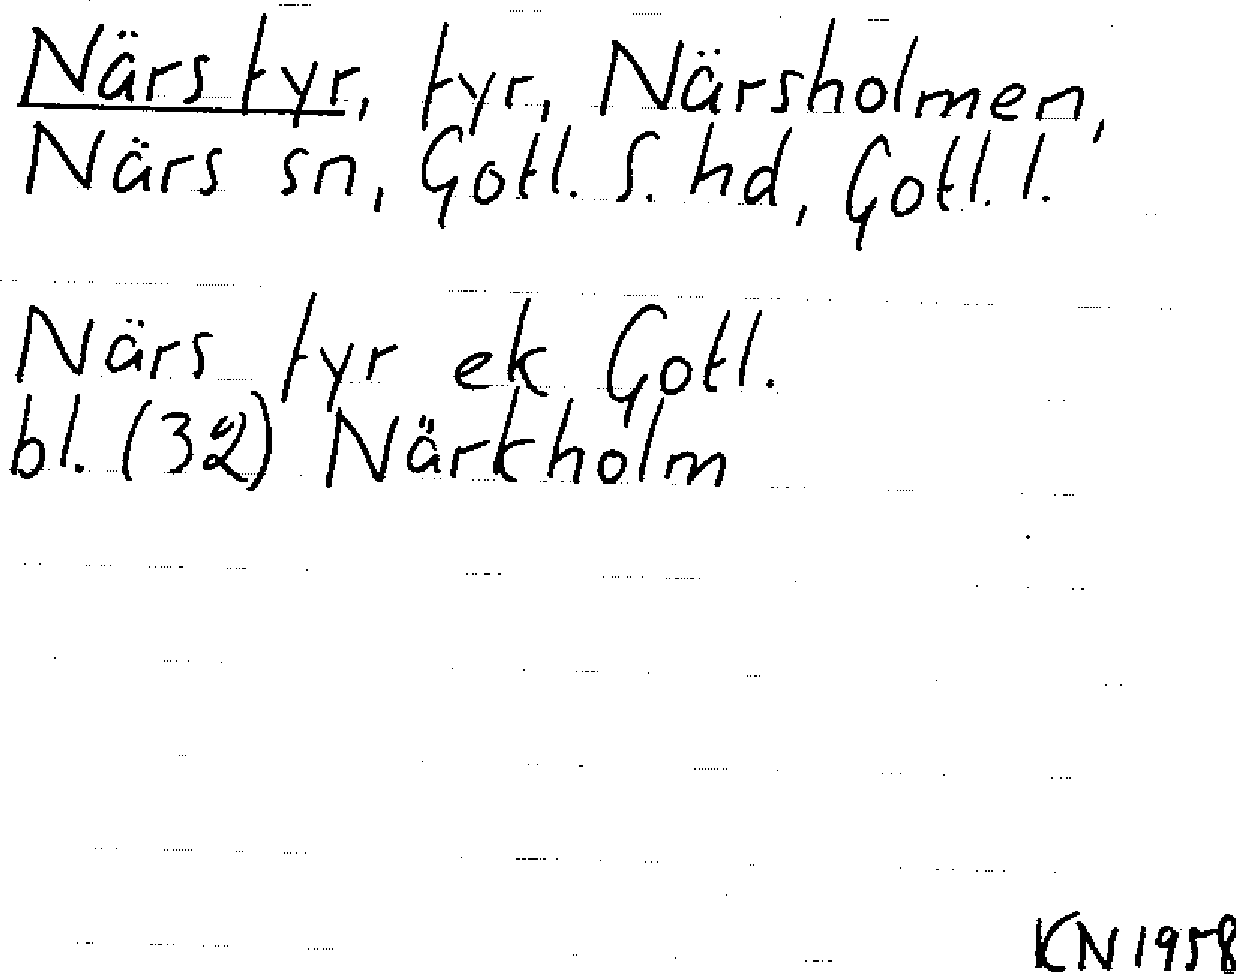 Närs fyr, fyr, Närsholmen,
Närs sn, Gotl. S. hd, Gotl. l.
Närs fyr ek Gotl.
bl. (32) Närkholm
KN 1958